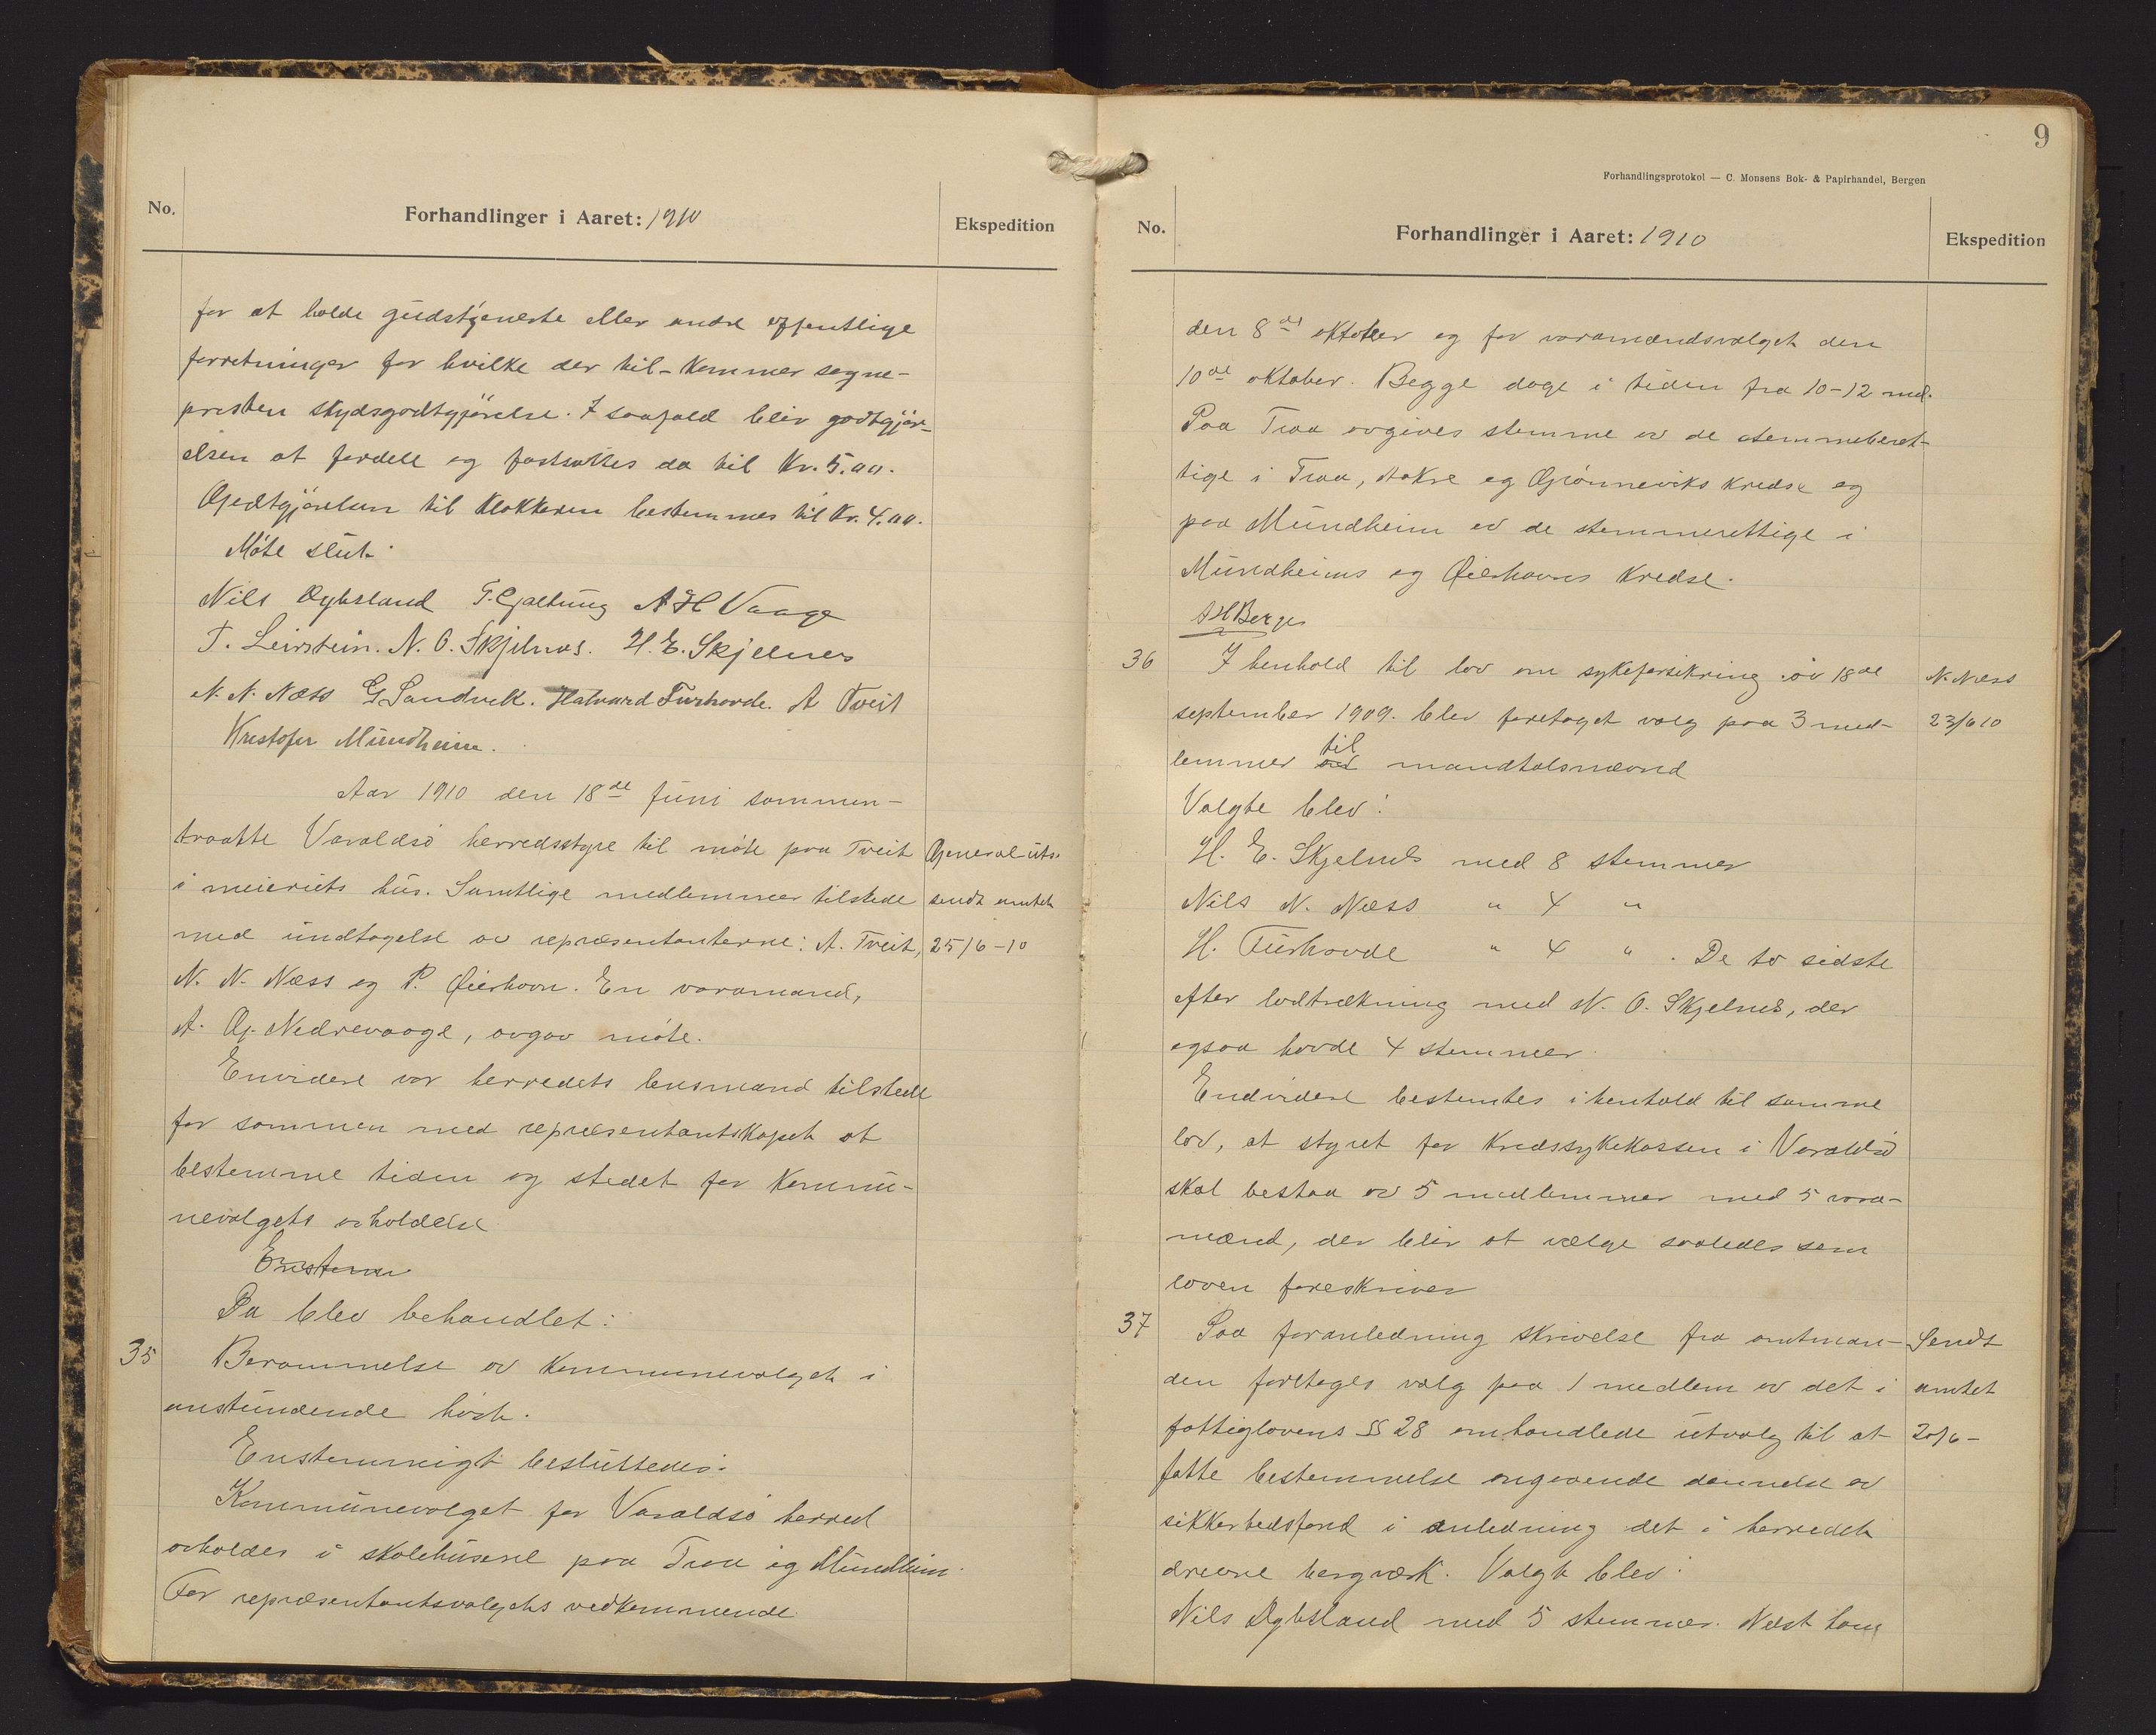 No.
Forhandlinger i Aaret: 1910
Ekspedition
for at holde gudstjeneste eller andre offentlige
forretninger for hvilke der til-kommer sogne-
presten skydsgodtgjørelse. I saafald blir godtgjør-
elsen at fordele og fastsættes da til Kr. 5.00.
Godtgjørelsen til klokkeren bestemmes til Kr. 4.00.
Møte slut.
Nils Dybsland T. Gjaltung A H Vaage
T. Leirstein. N. O. Skjelnes. H. E. Skjelnes
N. N. Næss G Sandvik. Halvard Furhovde. A Tveit
Kristofer Mundheim.
Aar 1910 den 18de juni sammen-
traatte Varaldsø herredsstyre til møte paa Tveit
General uts.
i meieriets hus. Samtlige medlemmer tilstede
sendt amtet
med undtagelse av repræsentanterne: A. Tveit,
25/6-10
N. N. Næss og P. Øierhavn. En varamand,
A. G. Nedrevaage, avgav møte.
Envidere var herredets lensmand tilstede
for sammen med repræsentantskapet at
bestemme tiden og stedet for kommu-
nevalgets avholdelse
Enstem
Da blev behandlet:
35
Berammelse av kommunevalget i
anstundende høst.
Enstemmigt besluttedes:
Kommunevalget for Varaldsø herred
avholdes i skolehusene paa Traa og Mundheim.
For repræsentantsvalgets vedkommende
9
Forhandlingsprotokol — C. Monsens Bok- & Papirhandel, Bergen
No.
Forhandlinger i Aaret: 1910
Ekspedition
den 8de oktober og for varamandsvalget den
10de oktober. Begge dage i tiden fra 10-12 md.
Paa Traa avgives stemme av de stemmeberet-
tige i Traa, Aakre og Gjønneviks kredse og
paa Mundheim av de stemmerettige i
Mundheims og Øierhavns kredse.
A H Berge
36
I henhold til lov om sykeforsikring av 18de
N. Næss
september 1909. blev foretaget valg paa 3 med-
23/6 10
lemmer av til mandtalsnævnd
Valgte blev:
H. E. Skjelnes med 8 stemmer
Nils N. Næss " 4 "
H. Furhovde " 4 " . De to sidste
efter lodtrækning med N. O. Skjelnes, der
ogsaa havde 4 stemmer.
Endvidere bestemtes i henhold til samme
lov, at styret for kredssykekassen i Varaldsø
skal bestaa av 5 medlemmer med 5 vara-
mænd, der blir at vælge saaledes som
loven foreskriver
37
Paa foranledning skrivelse fra amtman-
Sendt
den foretages valg paa 1 medlem av det i
amtet
fattiglovens §§ 28 omhandlede utvalg til at
20/6-
fatte bestemmelse angaaende dannelse av
sikkerhedsfond i anledning det i herredet
drevne bergværk. Valgt blev:
Nils Dybsland med 5 stemmer. Næst ham